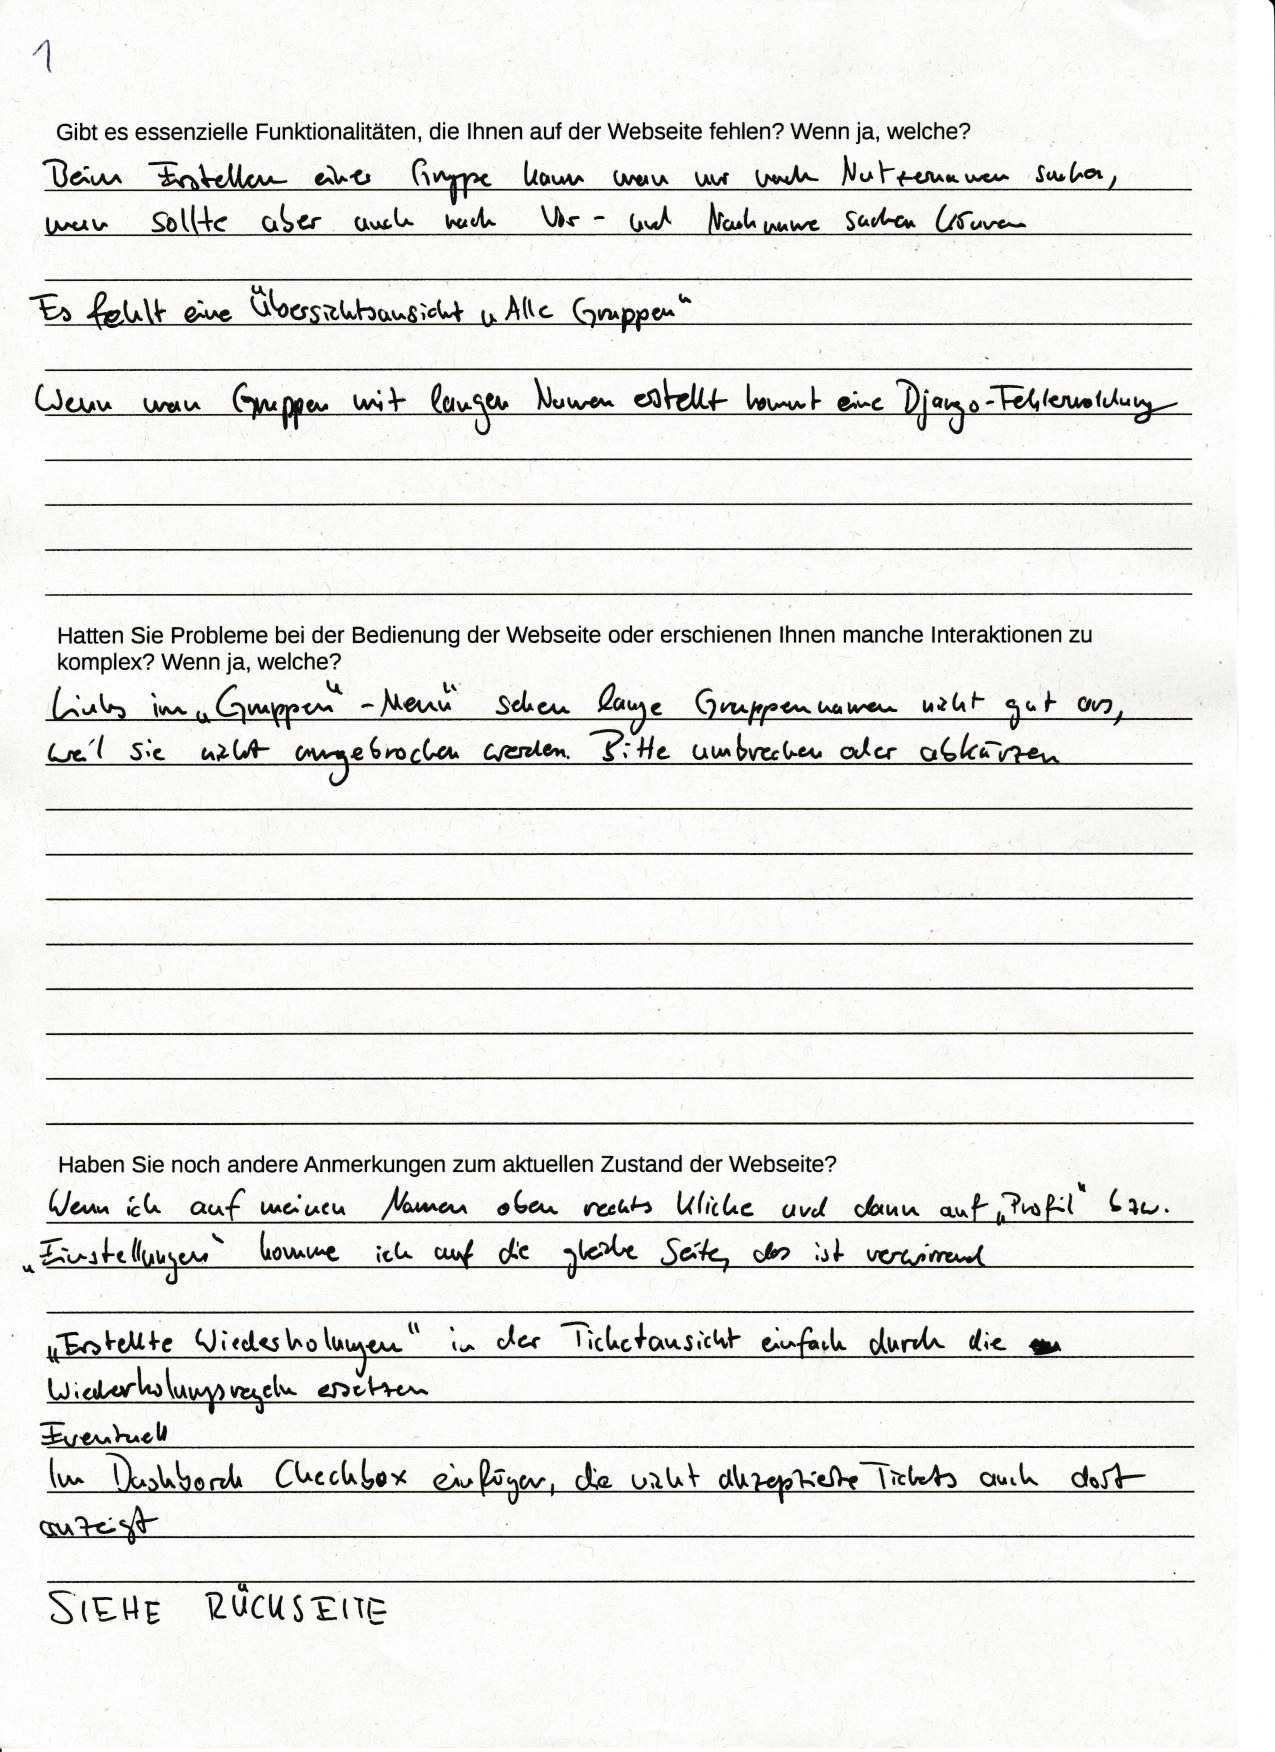 1
Gibt es essenzielle Funktionalitäten, die Ihnen auf der Webseite fehlen? Wenn ja, welche?
Beim Erstellen einer Gruppe kann man nur nach Nutzernamen suchen,
man sollte aber auch nach Vor- und Nachname suchen können
Es fehlt eine Übersichtsansicht „Alle Gruppen“
Wenn man Gruppen mit langen Namen erstellt kommt eine Django-Fehlermeldung
Hatten Sie Probleme bei der Bedienung der Webseite oder erschienen Ihnen manche Interaktionen zu
komplex? Wenn ja, welche?
Links im „Gruppen“-Menü sehen lange Gruppennamen nicht gut aus,
weil sie nicht umgebrochen werden. Bitte umbrechen oder abkürzen
Haben Sie noch andere Anmerkungen zum aktuellen Zustand der Webseite?
Wenn ich auf meinen Namen oben rechts klicke und dann auf „Profil“ bzw.
„Einstellungen“ komme ich auf die gleiche Seite, das ist verwirrend
„Erstellte Wiederholungen“ in der Ticketansicht einfach durch die
Wiederholungsregeln ersetzen
Eventuell
Im Dashborch Checkbox einfügen, die nicht akzeptierte Tickets auch dort
anzeigt
SIEHE RÜCKSEITE